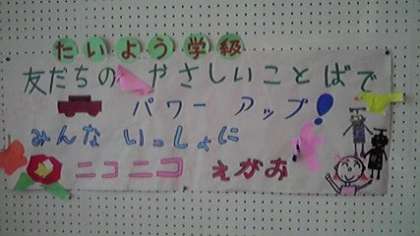 たいよう学級
友だちの やさしいことばで
パワーアップ!
みんないっしょに
ニコニコ えがお